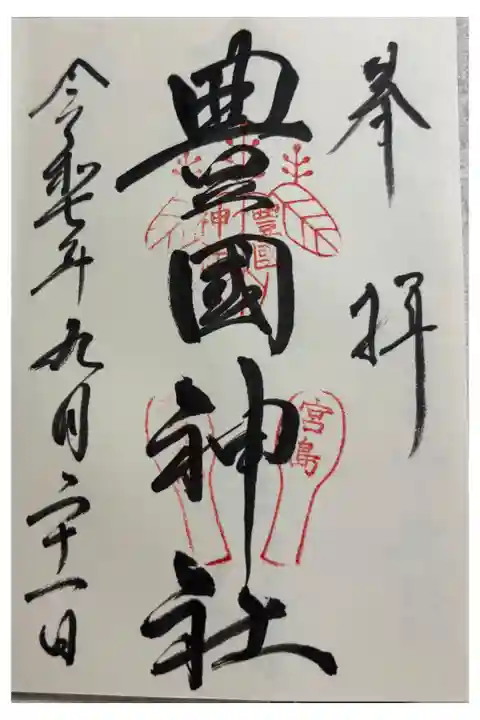 奉拝
豊國神社
豊国
神
宮島
令和七年九月二十一日